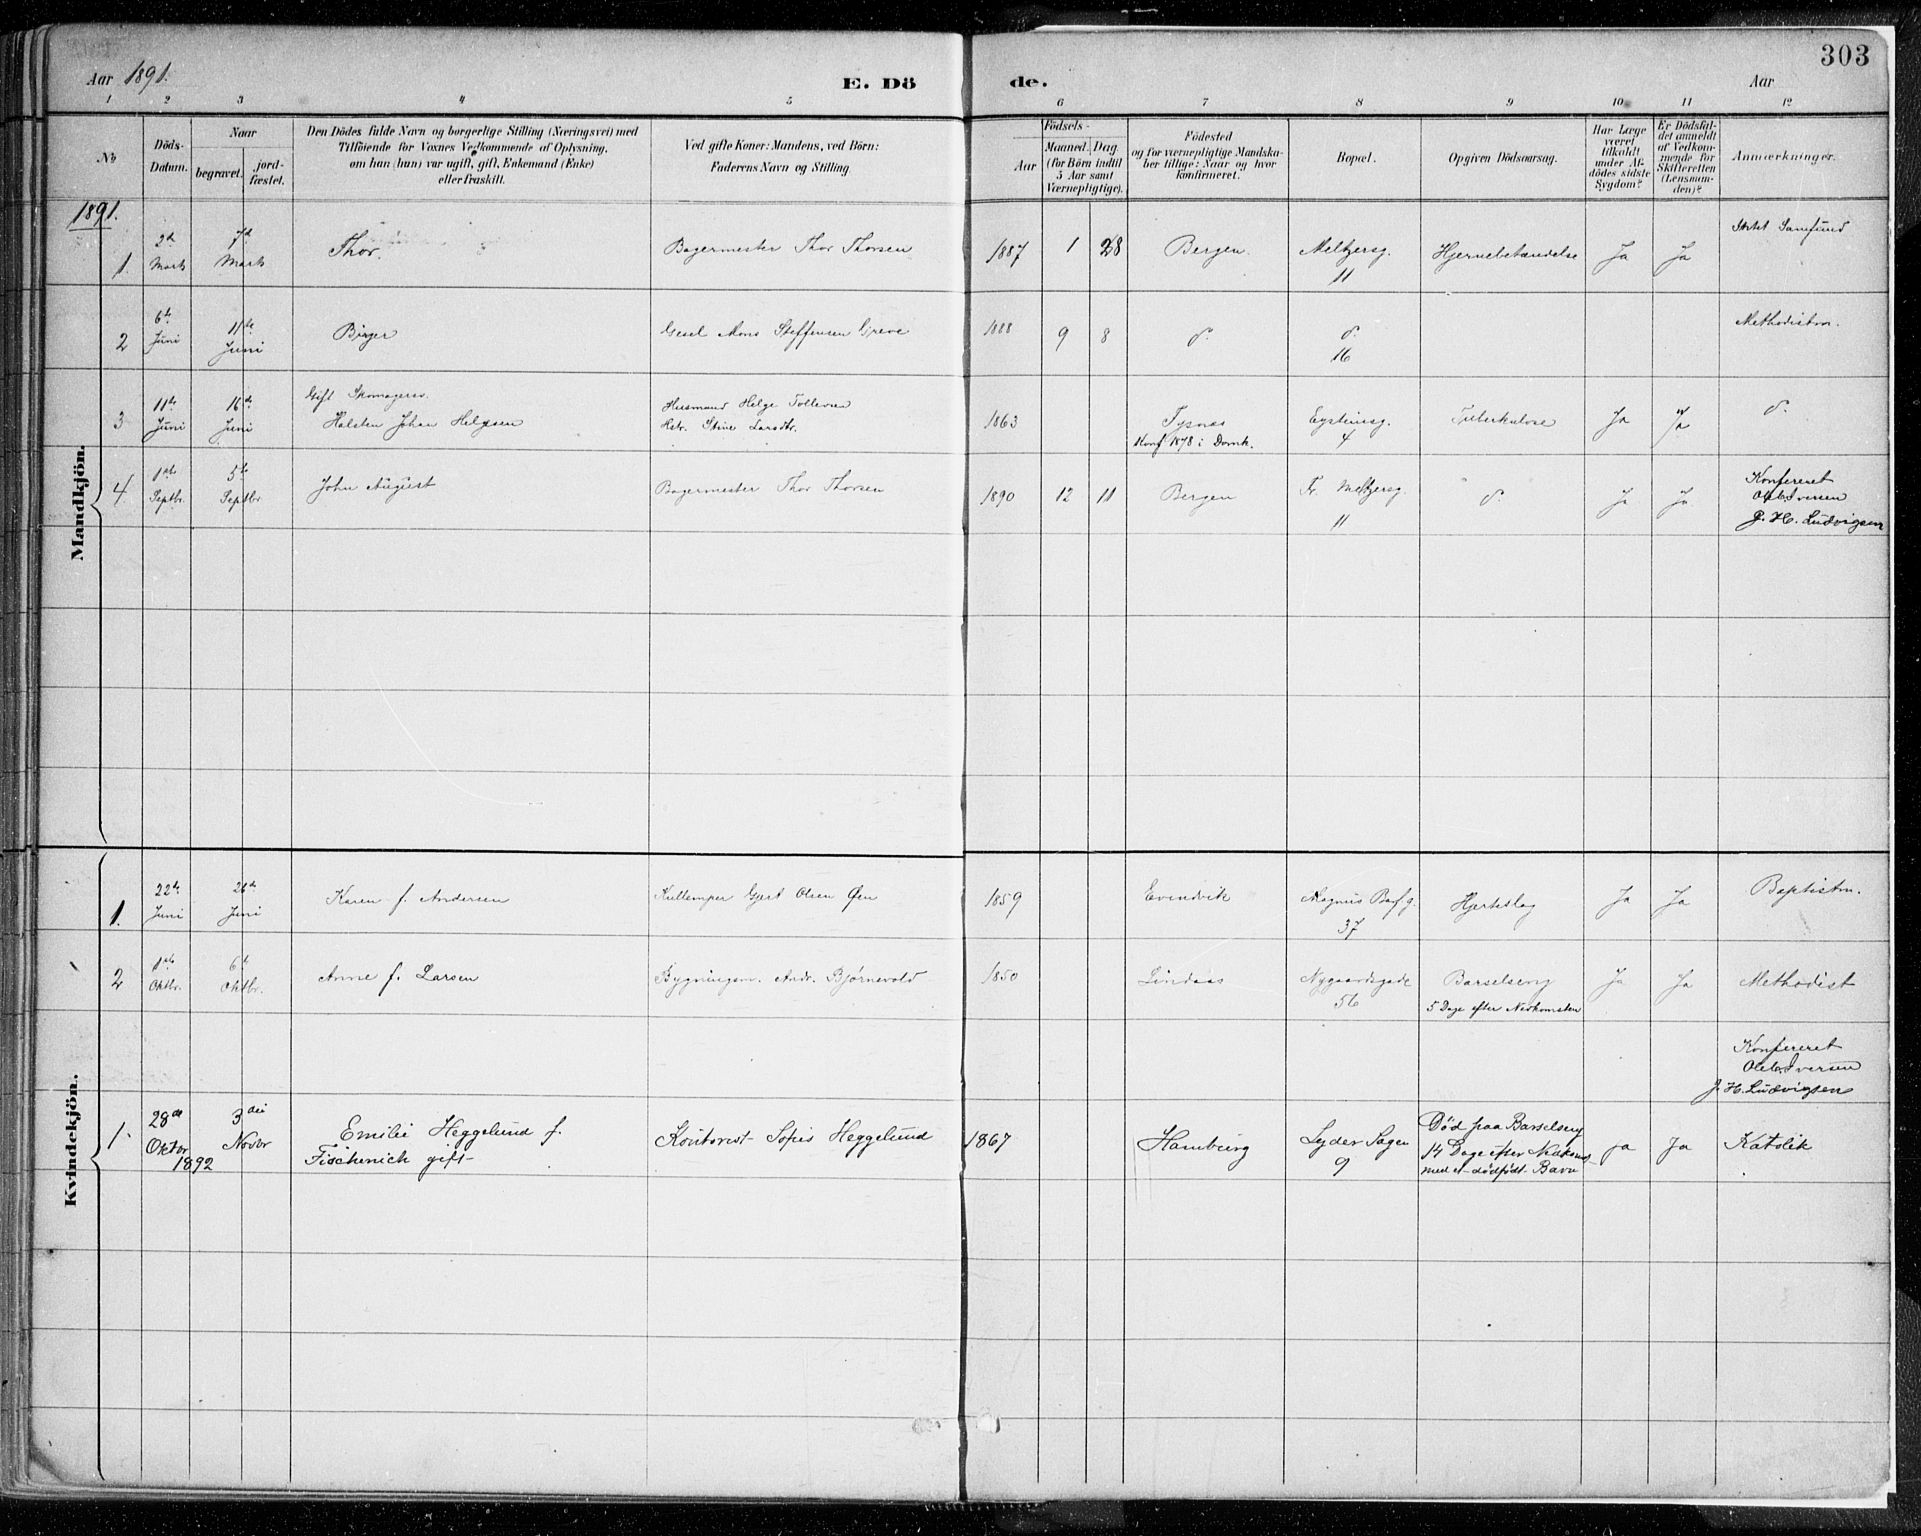 303
Aar 1891. E. Dö de. Aar
1 2 3 4 5 6 7 8 9 10 11 12
No
Döds-Datum.
Naar
begravet.
jord-fæstet.
Den Dödes fulde Navn og borgerlige Stilling (Næringsvei) med
Tilföiende for Voxnes Vedkommende af Oplysning,
om han (hun) var ugift, gift, Enkemand (Enke)
eller fraskilt.
Ved gifte Koner: Mandens, ved Börn:
Faderens Navn og Stilling
Födsels-
Aar
Maaned. Dag.
(for Börn indtil
5 Aar samt
Værnepligtige).
Födested
og for værnepligtige Mandska-
ber tillige: Naar og hvor
konfirmeret.
Bopæl.
Opgiven Dödsaarsag.
Har Læge
været
tilkaldt
under Af-
dödes sidste
Sygdom?
Er Dödsfal-
det anmeldt
af Vedkom-
mende for
Skifteretten
(Lensman-
den)?
Anmærkninger.
1891.
Mandkjön.
1. 2de Marts 7de Marts Thor. Bagermester Thor Thorsen 1887 1 28 Bergen. Meltzersg. 11 Hjernebetændelse Ja Ja Samfund
2 6te Juni 11te Juni Birger Mons Steffensen Greve 1888 9 8 d. d. 16 Methodistm.
3 11te Juni 16de Juni Gift Skomagersv.
Halsten Johan Helgesen Husmand Helge Tollevsen
Hstr. Stine Larsdtr. 1863 Tysnæs
Konf 1878 i Domk. Eysteinsg. 4 Tuberkulose Ja Ja d.
4. 1ste Septbr. 5te Septbr John August Bagermester Thor Thorsen 1890 12 11 Bergen Fr. Meltzersg. 11 d. Ja Ja Konfereret
Ole Iversen
J. H. Ludvigsen
Kvindekjön.
1. 22de Juni 26de Juni Karen f. Andersen Kullemper Gjert Olsen Øen 1859 Evindvik Magnus Barf.g. 37 Hjerteslag Ja Ja Baptistm.
2 1ste Oktbr. 6te Oktbr. Anne f. Larsen Bygningsm. Andr. Bjørnevold 1850 Lindaas Nygaardsgade 56 Barselseng
5 Dage efter Nedkomsten Ja Ja Methodist
Konfereret
Ole Iversen
J. H. Ludvigsen
1. 28de Oktbr 1892 3die Novbr Emilie Heggelund f.
Fischenich gift Kontorist Sofus Heggelund 1867 Hamburg Lyder Sagen 9 Død paa Barselseng
14 Dage efter Nedkomst
med et dødfødt Barn ja Ja Katolik